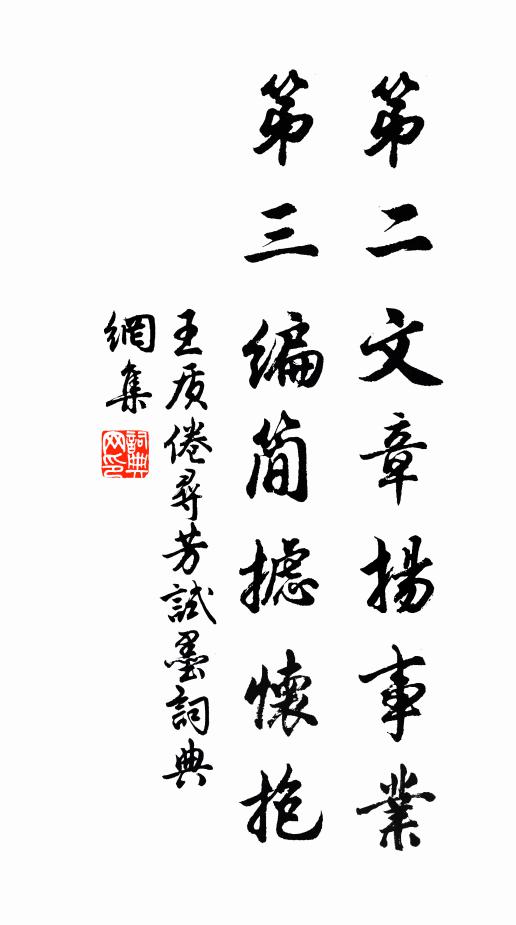 第二文章揚事業
第三編简攄懷抱
王质倦尋芳試墨詞典
網集
詞典网印